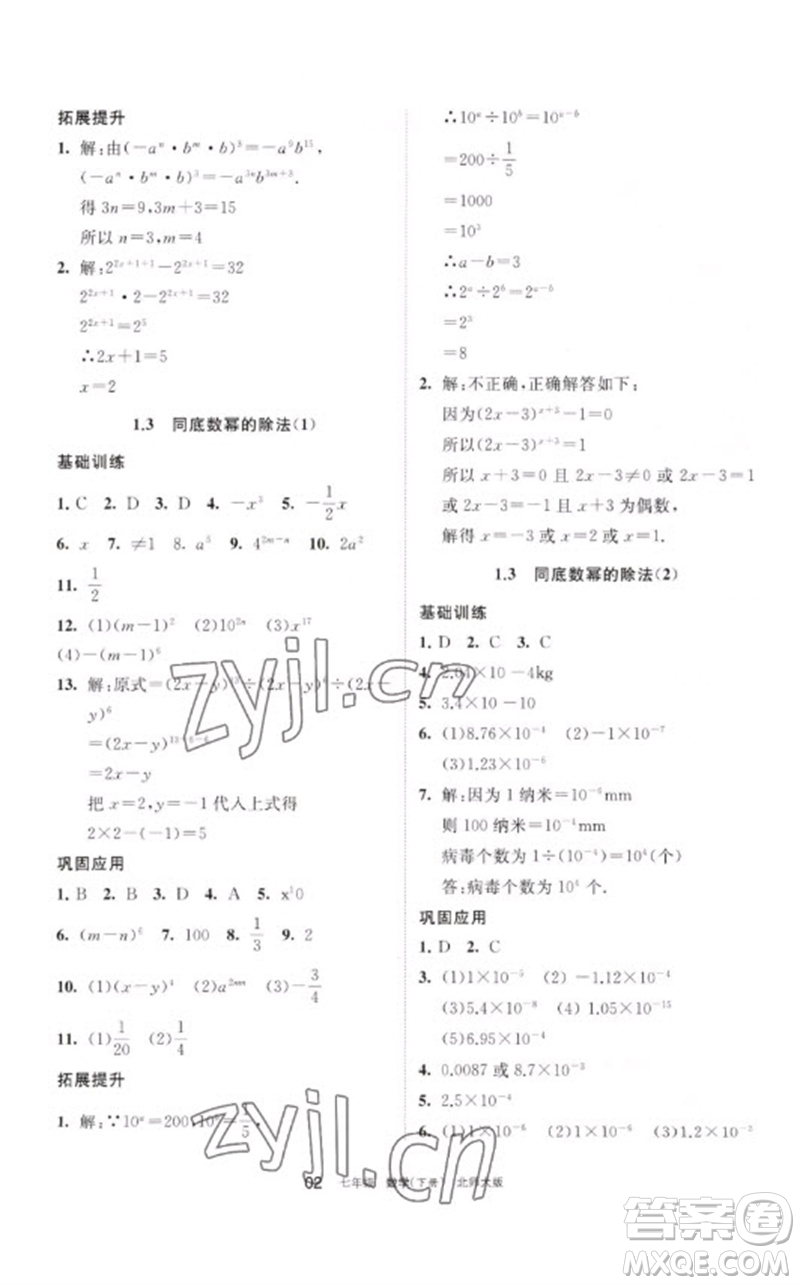 拓展提升
1. 解:由(-aⁿ·bᵐ·b)³=-a⁹b¹⁵,
(-aⁿ·bᵐ·b)³=-a³ⁿb³ᵐ⁺³.
得 3n=9,3m+3=15
所以 n=3,m=4
2. 解:2²ˣ⁺¹⁺¹-2²ˣ⁺¹=32
2²ˣ⁺¹·2-2²ˣ⁺¹=32
2²ˣ⁺¹=2⁵
∴2x+1=5
x=2
1.3 同底数幂的除法(1)
基础训练
1. C 2. D 3. D 4. -x³ 5. -1/2x
6. x 7. ≠1 8. a⁵ 9. 4²ᵐ⁻ⁿ 10. 2a²
11. 1/2
12. (1)(m-1)² (2)10²ⁿ (3)x¹⁷
(4)-(m-1)⁶
13. 解:原式=(2x-y)¹³÷(2x-y)⁶÷(2x-
y)⁶
=(2x-y)¹³⁻⁶⁻⁶
=2x-y
把 x=2,y=-1代入上式得
2×2-(-1)=5
巩固应用
1. B 2. B 3. D 4. A 5. x¹0
6. (m-n)⁶ 7. 100 8. 1/3 9. 2
10. (1)(x-y)⁴ (2)a²ᵐⁿ (3)-3/4
11. (1)1/20 (2)1/4
拓展提升
1. 解:∵10ᵃ=200,10ᵇ=1/5,
∴10ᵃ÷10ᵇ=10ᵃ⁻ᵇ
=200÷1/5
=1000
=10³
∴a-b=3
∴2ᵃ÷2ᵇ=2ᵃ⁻ᵇ
=2³
=8
2. 解:不正确,正确解答如下:
因为(2x-3)ˣ⁺³=1
所以(2x-3)ˣ⁺³=1
所以 x+3=0 且 2x-3≠0 或 2x-3=1
或 2x-3=-1 且 x+3 为偶数,
解得 x=-3 或 x=2 或 x=1.
1.3 同底数幂的除法(2)
基础训练
1. D 2. C 3. C
4. 2.04×10-4kg
5. 3.4×10-10
6. (1)8.76×10⁻⁴ (2)-1×10⁻⁷
(3)1.23×10⁻⁶
7. 解:因为 1 纳米=10⁻⁶mm
则 100 纳米=10⁻⁴mm
病毒个数为 1÷(10⁻⁴)=10⁴(个)
答:病毒个数为 10⁴ 个.
巩固应用
1. D 2. C
3. (1)1×10⁻⁵ (2)-1.12×10⁻⁴
(3)5.4×10⁻⁸ (4)1.05×10⁻¹⁵
(5)6.95×10⁻⁴
4. 0.0087 或 8.7×10⁻³
5. 2.5×10⁻⁴
6. (1)1×10⁻⁶ (2)1×10⁻⁶ (3)1.2×10⁻²
02 七年级 数学(下册) 北师大版
zyjl.cn
zyjl.cn
答案圈
MXQE.COM